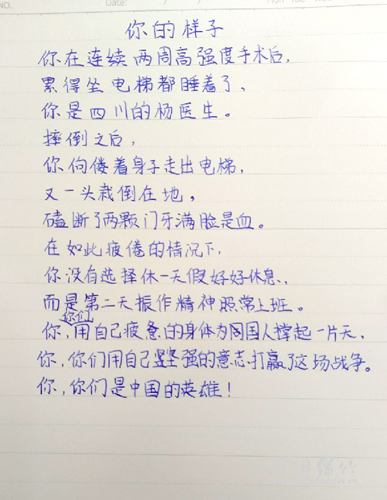 NO.
Date: / /
你的样子
你在连续两周高强度手术后,
累得坐电梯都睡着了、
你是四川的杨医生。
摔倒之后,
你佝偻着身子走出电梯,
又一头栽倒在地,
磕断了两颗门牙满脸是血。
在如此疲倦的情况下,
你没有选择休一天假好好休息、
而是第二天振作精神照常上班。
你们
你,用自己疲惫的身体为国人撑起一片天,
你,你们用自己坚强的意志打赢了这场战争。
你,你们是中国的英雄!